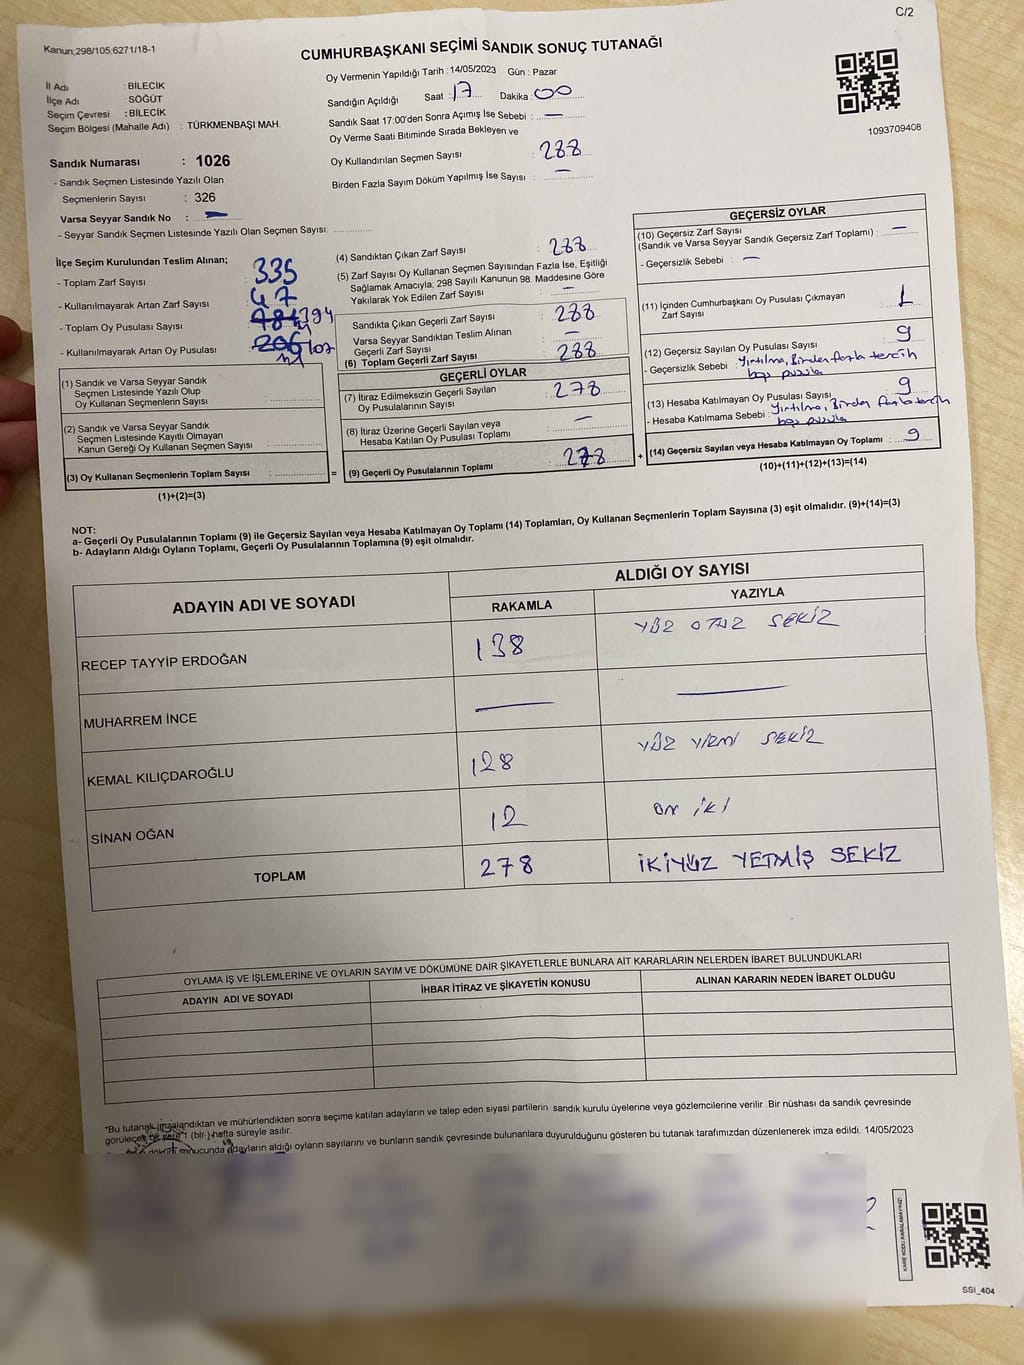 C/2
Kanun;298/105;6271/18-1
CUMHURBAŞKANI SEÇİMİ SANDIK SONUÇ TUTANAĞI
İl Adı : BİLECİK
İlçe Adı : SÖĞÜT
Seçim Çevresi : BİLECİK
Seçim Bölgesi (Mahalle Adı) : TÜRKMENBAŞI MAH.
Oy Vermenin Yapıldığı Tarih : 14/05/2023 Gün : Pazar
Sandığın Açıldığı Saat : 17 Dakika : 00
Sandık Saat 17:00'den Sonra Açımış İse Sebebi : —
Oy Verme Saati Bitiminde Sırada Bekleyen ve
Oy Kullandırılan Seçmen Sayısı : 288
Birden Fazla Sayım Döküm Yapılmış İse Sayısı : —
1093709408
Sandık Numarası : 1026
- Sandık Seçmen Listesinde Yazılı Olan
Seçmenlerin Sayısı : 326
Varsa Seyyar Sandık No : —
- Seyyar Sandık Seçmen Listesinde Yazılı Olan Seçmen Sayısı:
İlçe Seçim Kurulundan Teslim Alınan;
- Toplam Zarf Sayısı : 335
- Kullanılmayarak Artan Zarf Sayısı : 47
- Toplam Oy Pusulası Sayısı : 394
- Kullanılmayarak Artan Oy Pusulası : 107
(1) Sandık ve Varsa Seyyar Sandık
Seçmen Listesinde Yazılı Olup
Oy Kullanan Seçmenlerin Sayısı :
(2) Sandık ve Varsa Seyyar Sandık
Seçmen Listesinde Kayıtlı Olmayan
Kanun Gereği Oy Kullanan Seçmen Sayısı :
(3) Oy Kullanan Seçmenlerin Toplam Sayısı : =
(1)+(2)=(3)
(4) Sandıktan Çıkan Zarf Sayısı : 288
(5) Zarf Sayısı Oy Kullanan Seçmen Sayısından Fazla İse, Eşitliği
Sağlamak Amacıyla, 298 Sayılı Kanunun 98. Maddesine Göre
Yakılarak Yok Edilen Zarf Sayısı : —
Sandıkta Çıkan Geçerli Zarf Sayısı : 288
Varsa Seyyar Sandıktan Teslim Alınan
Geçerli Zarf Sayısı : —
(6) Toplam Geçerli Zarf Sayısı : 288
GEÇERLİ OYLAR
(7) İtiraz Edilmeksizin Geçerli Sayılan
Oy Pusulalarının Sayısı : 278
(8) İtiraz Üzerine Geçerli Sayılan veya
Hesaba Katılan Oy Pusulası Toplamı : —
(9) Geçerli Oy Pusulalarının Toplamı : 278 +
GEÇERSİZ OYLAR
(10) Geçersiz Zarf Sayısı
(Sandık ve Varsa Seyyar Sandık Geçersiz Zarf Toplamı) : —
- Geçersizlik Sebebi : —
(11) İçinden Cumhurbaşkanı Oy Pusulası Çıkmayan
Zarf Sayısı : 1
(12) Geçersiz Sayılan Oy Pusulası Sayısı : 9
- Geçersizlik Sebebi : Yırtılma, Birden fazla tercih
boş pusula
(13) Hesaba Katılmayan Oy Pusulası Sayısı : 9
- Hesaba Katılmama Sebebi : Yırtılma, Birden fazla tercih
boş pusula
(14) Geçersiz Sayılan veya Hesaba Katılmayan Oy Toplamı : 9
(10)+(11)+(12)+(13)=(14)
NOT:
a- Geçerli Oy Pusulalarının Toplamı (9) ile Geçersiz Sayılan veya Hesaba Katılmayan Oy Toplamı (14) Toplamları, Oy Kullanan Seçmenlerin Toplam Sayısına (3) eşit olmalıdır. (9)+(14)=(3)
b- Adayların Aldığı Oyların Toplamı, Geçerli Oy Pusulalarının Toplamına (9) eşit olmalıdır.
ADAYIN ADI VE SOYADI
ALDIĞI OY SAYISI
RAKAMLA YAZIYLA
RECEP TAYYİP ERDOĞAN 138 YÜZ OTUZ SEKİZ
MUHARREM İNCE — —
KEMAL KILIÇDAROĞLU 128 YÜZ YİRMİ SEKİZ
SİNAN OĞAN 12 ON İKİ
TOPLAM 278 İKİYÜZ YETMİŞ SEKİZ
OYLAMA İŞ VE İŞLEMLERİNE VE OYLARIN SAYIM VE DÖKÜMÜNE DAİR ŞİKAYETLERLE BUNLARA AİT KARARLARIN NELERDEN İBARET BULUNDUKLARI
ADAYIN ADI VE SOYADI İHBAR İTİRAZ VE ŞİKAYETİN KONUSU ALINAN KARARIN NEDEN İBARET OLDUĞU
*Bu tutanak imzalandıktan ve mühürlendikten sonra seçime katılan adayların ve talep eden siyasi partilerin sandık kurulu üyelerine veya gözlemcilerine verilir. Bir nüshası da sandık çevresinde
görülecek bir yere 1 (bir) hafta süreyle asılır.
döküm sonucunda adayların aldığı oyların sayılarını ve bunların sandık çevresinde bulunanlara duyurulduğunu gösteren bu tutanak tarafımızdan düzenlenerek imza edildi. 14/05/2023
KARE KODU KARALAMAYINIZ!
SSI_404